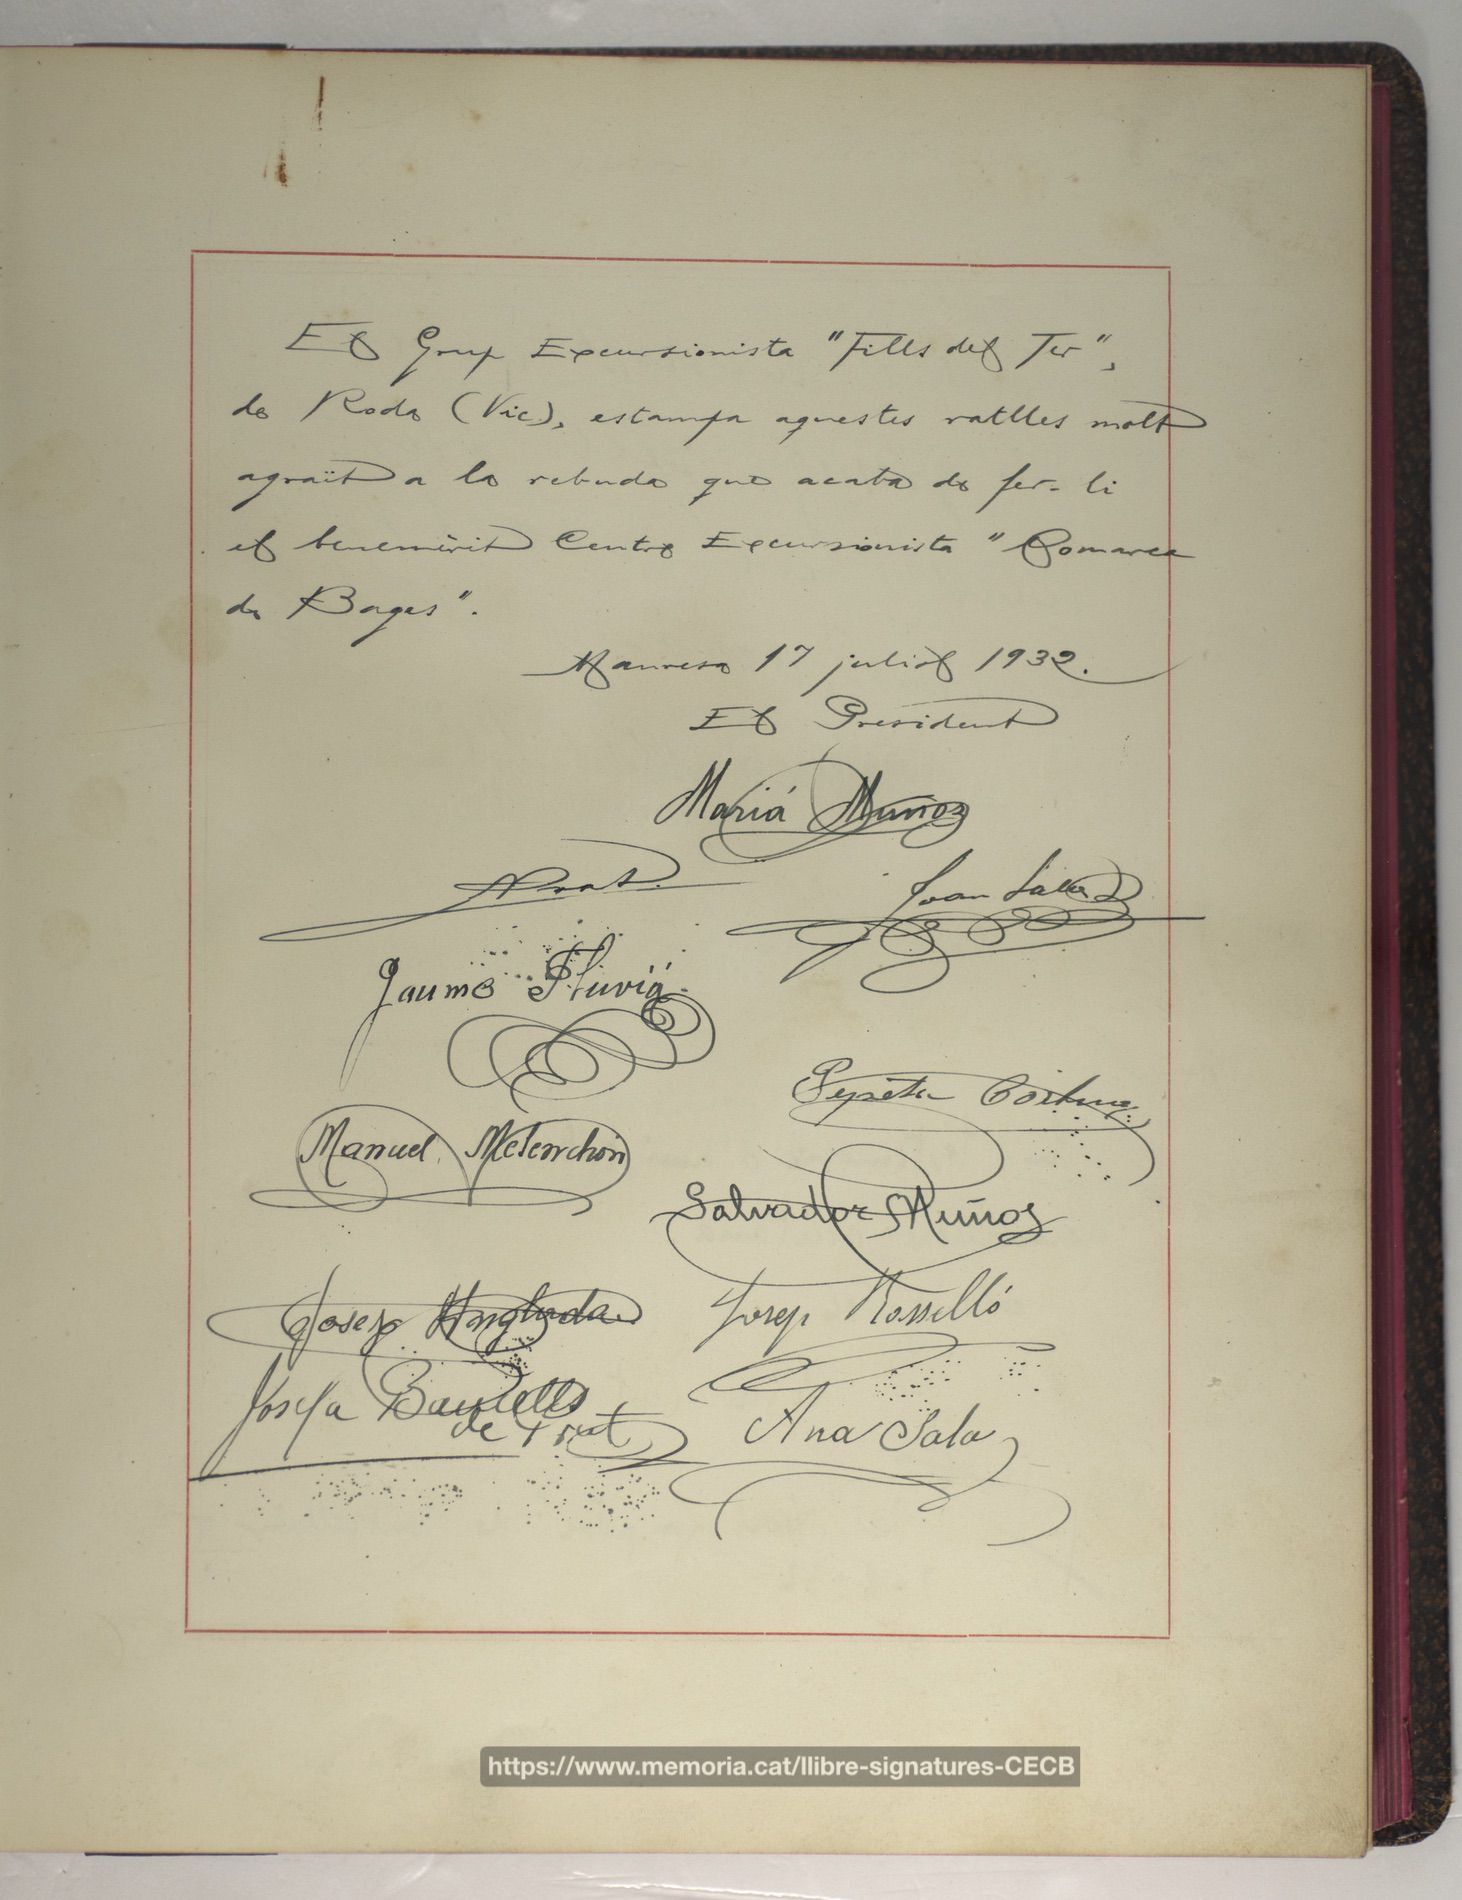 El Grup Excursionista "Fills del Ter",
de Roda (Vic), estampa aquestes ratlles molt
agraït a la rebuda que acaba de fer-li
el benemèrit Centre Excursionista "Comarca
de Bages".
Manresa 17 juliol 1932.
El President
Mariá Muñoz
Prat.
Joan Sala
Jaume Fluviá.
Pepeta
Manuel Melenchón
Salvador Muñoz
Josep Anglada
Josep Rosselló
Josefa
de Prat
Ana Sala
https://www.memoria.cat/llibre-signatures-CECB